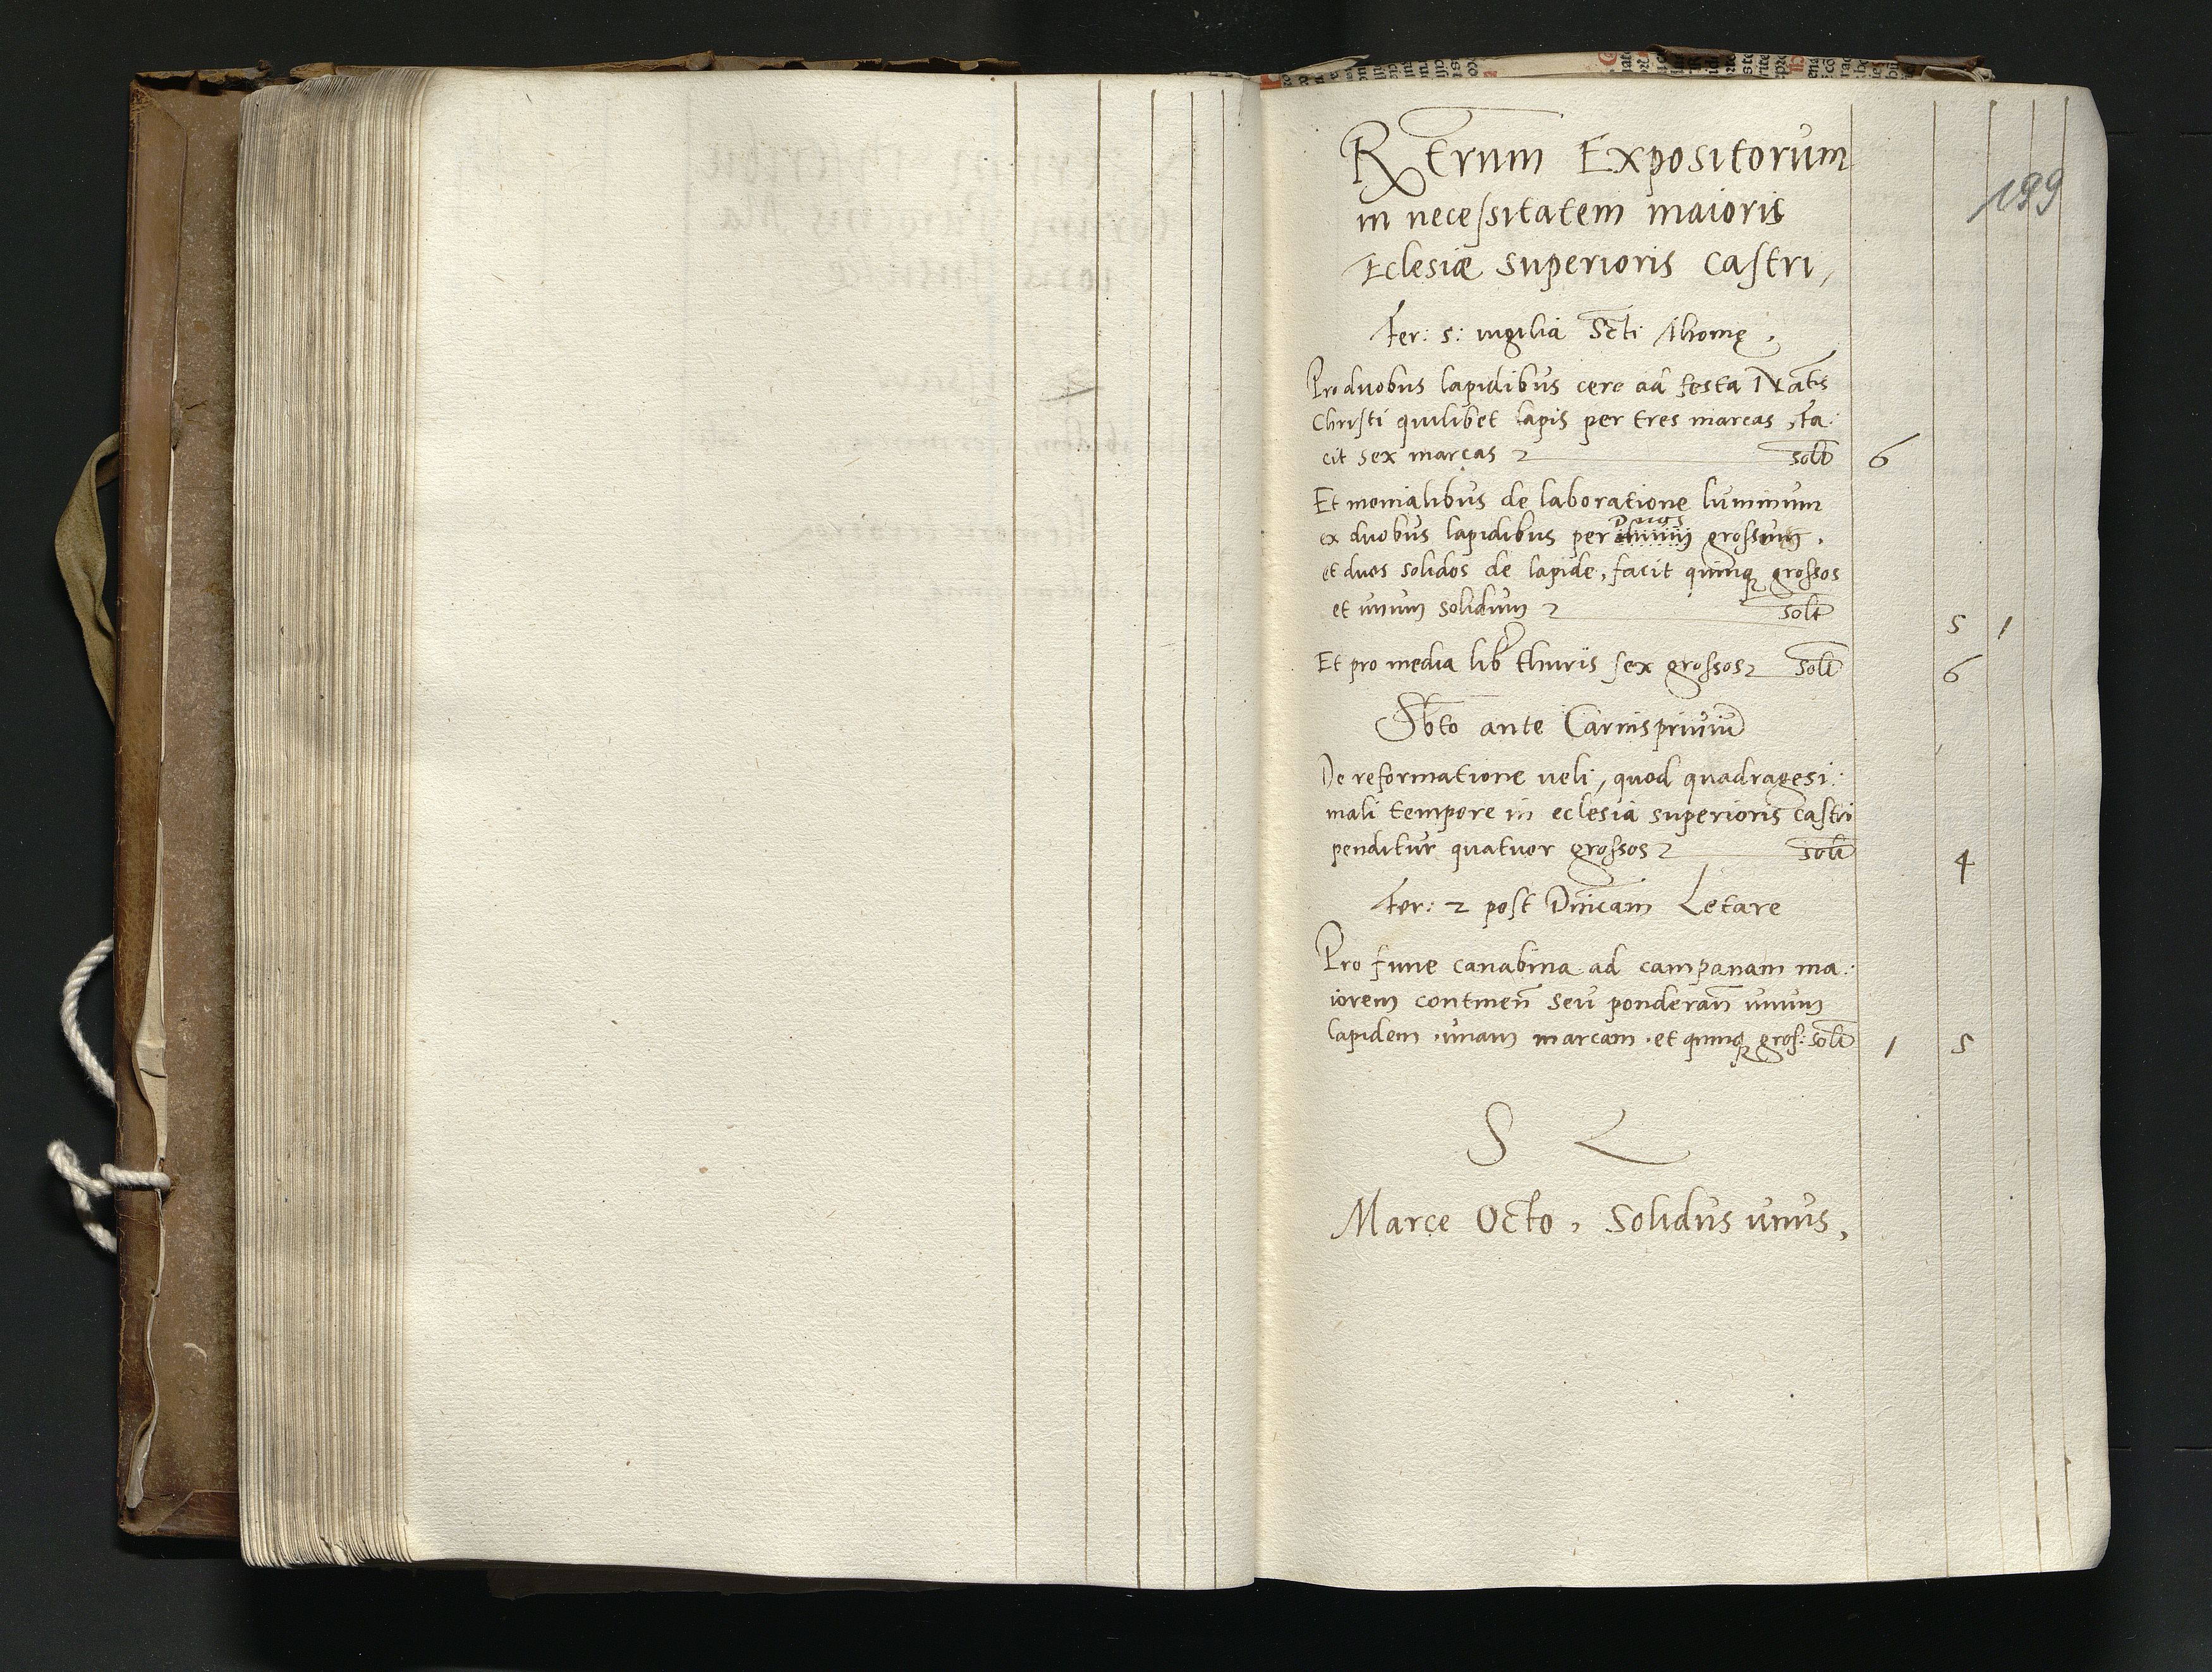 Rerum Expositorum
199
in necessitatem maioris
Eclesiæ superioris castri,
Fer: 5: uigilia Scti Thomę,
Pro duobus lapidibus cere ad festa Natis
Christi quilibet lapis per tres marcas, fa:
cit sex marcas solt 6
Et monialibus de laboratione luminum
duos
ex duobus lapidibus per grossum,
et duos solidos de lapide, facit quinq grossos
et unum solidum solt 5 1
Et pro media lib thuris sex grossos solt 6
Sbto ante Carnispriuiu
De reformatione ueli, quod quadragesi:
mali tempore in eclesia superioris castri
penditur quatuor grossos solt 4
Fer: 2 post Dnicam Letare
Pro fune canabina ad campanam ma:
iorem continen seu ponderan unum
lapidem unam marcam et quinq gros: solt 1 5
S L
Marce Octo, Solidus unus,